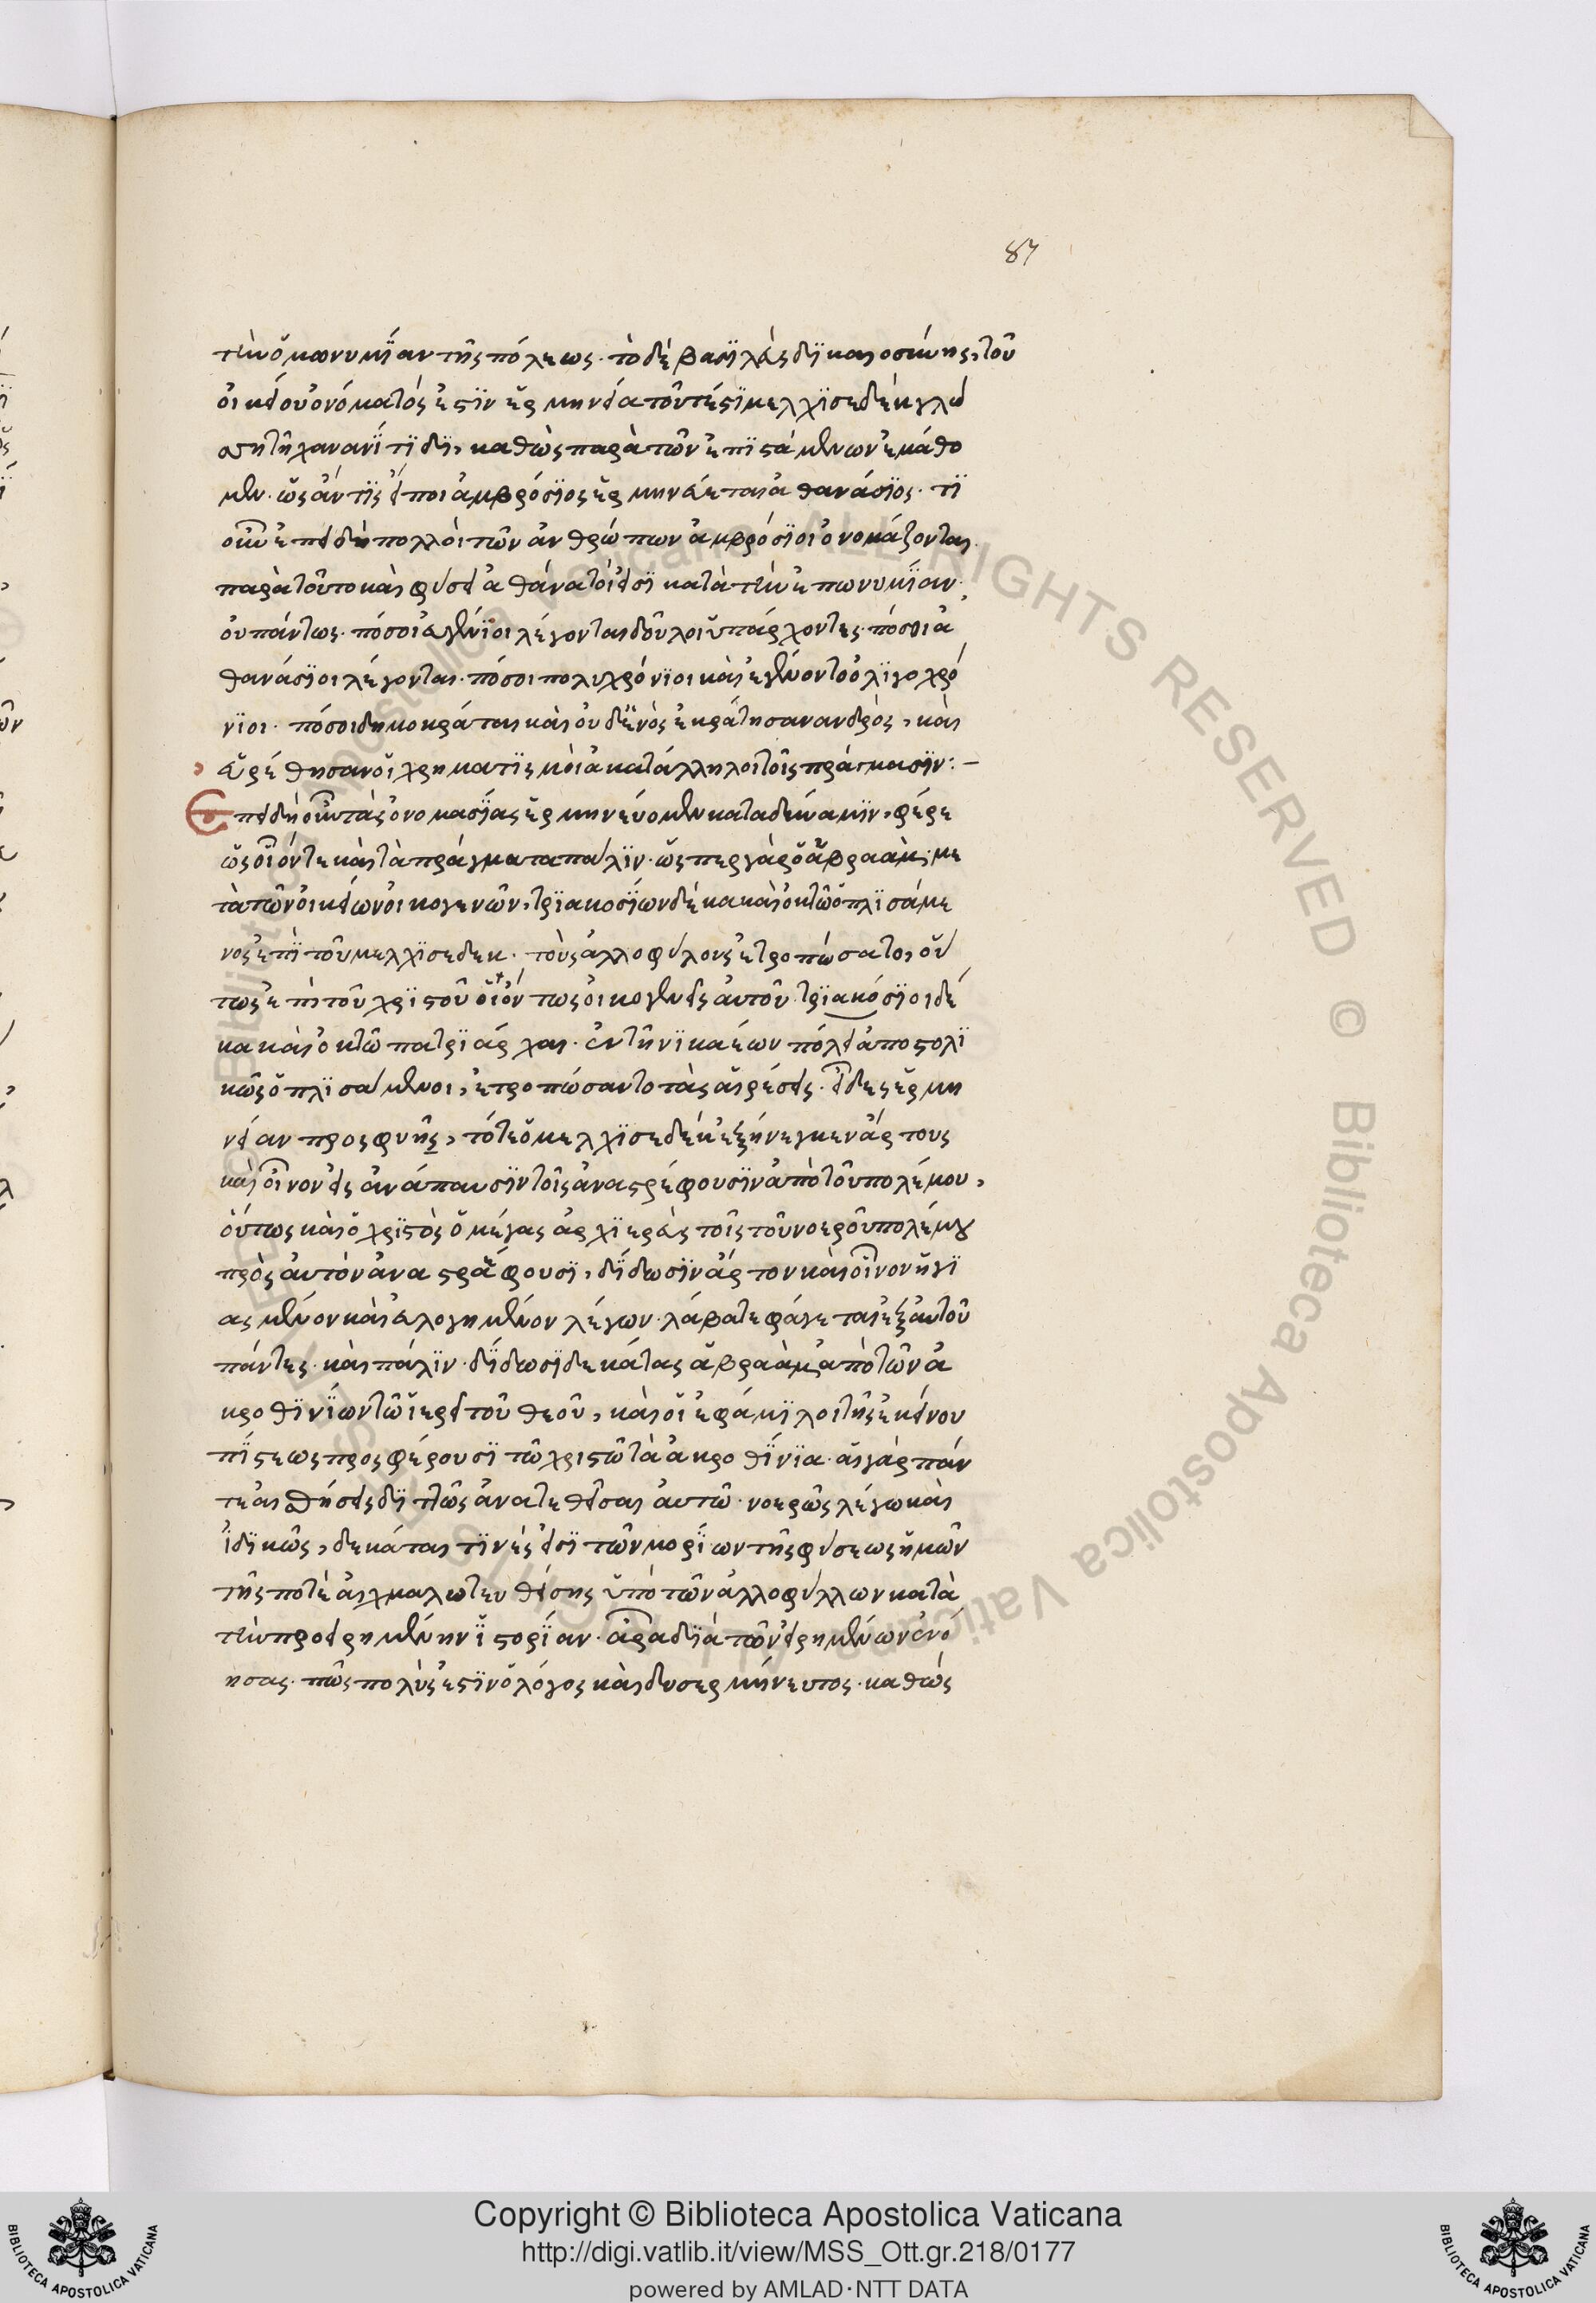 87
τὴν ὁμωνυμΐαν τῆς πόλεως· τὸ δὲ βασϊλεὺς δϊκαιοσύνης, τοῦ
οἰκείου ὀνόματός ἐστϊν ἑρμηνεία τουτέστϊ μελχϊσεδὲκ γλώ
σση τῆ χανανΐτϊδϊ, καθὼς παρὰ τῶν ἐπϊσταμένων ἐμάθο
μεν· ὡς ἄν τϊς εἴποι ἀμβρόσϊος ἑρμηνεύεται ἀθανάσϊος· τϊ
οὖν ἐπειδὴ πολλοὶ τῶν ἀνθρώπων ἀμβρόσϊοι ὀνομάζονται
παρὰ τοῦτο καὶ φύσει ἀθάνατοί εἰσϊ κατὰ τὴν ἐπωνυμΐαν·
οὐ πάντως· πόσοι εὐγένϊοι λέγονται δοῦλοι ὑπάρχοντες· πόσοι ἀ
θανάσϊοι λέγονται· πόσοι πολυχρόνϊοι καὶ ἐγένοντο ὀλϊγοχρό
νϊοι· πόσοι δημοκράται καὶ οὐδενὸς ἐκράτησαν ανδρὸς, καὶ
εὑρέθησαν οἱ χρηματϊσμοὶ ἀκατάλληλοι τοῖς πράγμασϊν:–
Ἐπειδὴ οὖν τὰς ὀνομασΐας ἑρμηνεύομεν κατα δύναμϊν, φέρε
ὡς οἷόντε καὶ τὰ πράγματα παλϊν· ὥσπερ γὰρ ὁ ἀβραὰμ με
τὰ τῶν οἰκείων οἰκογενῶν, τρϊακοσΐων δέκα καὶ ὀκτὼ ὁπλϊσάμε
νος ἐπὶ τοῦ μελχϊσεδεκ· τοὺς ἀλλοφύλους ἐτροπώσατο, οὕ
τως ἐπὶ τοῦ χρϊστοῦ οἱ ὄντως οἰκογενεῖς αὐτοῦ τρϊακόσϊοι δέ
κα καὶ ὀκτὼ πατρϊάρχαι· ἐν τῆ νϊκαέων πόλει ἀποστολϊ
κῶς ὁπλϊσαμενοι, ἐτροπώσαντο τὰς αἱρέσεις· εἶδες ἑρμη
νείαν προσφυῆς, τότε ὁ μελχϊσεδὲκ ἐξήνεγκεν ἄρτους
καὶ οἶνον εἰς ἀνάπαυσϊν τοῖς ἀναστρέφουσϊν ἀπὸ τοῦ πολέμου,
οὕτως καὶ ὁ χρϊστὸς ὁ μέγας ἀρχϊερεὺς τοῖς τοῦ νοεροῦ πολέμου
πρὸς αὐτὸν ἀναστρέφουσϊ, δΐδωσϊν ἄρτον καὶ οἶνον ἡγϊ
ασμένον καὶ εὐλογημένον λέγων· λάβατε φάγεται ἐξ αυτοῦ
πάντες· καὶ πάλϊν· δΐδωσϊ δεκάτας ἀβραὰμ ἀπὸ τῶν ἀ
κροθϊνΐων τῶ ἱερεῖ τοῦ θεοῦ, καὶ οἱ ἐφάμϊλοι τῆς ἐκείνου
πΐστεως προσφέρουσϊ τῶ χριστῶ τὰ ἀκροθΐνϊα· αἱ γὰρ πάν
τε αἰσθήσεις δϊπλῶς ἀνατεθεῖσαι αὐτῶ· νοερῶς λέγω καὶ
ϊδϊκῶς, δεκάται τϊνές εἰσϊ τῶν μορΐων τῆς φύσεως ἡμῶν
τῆς ποτὲ αἰχμαλωτευθείσης ὑπὸ τῶν ἀλλοφύλλων κατὰ
τὴν προειρημένην ἱστορΐαν· ἆρα δϊὰ τῶν εἰρημένων ἐνό
ησας· πῶς πολύς ἐστϊν ὁ λόγος καὶ δυσερμήνευτος· καθώς